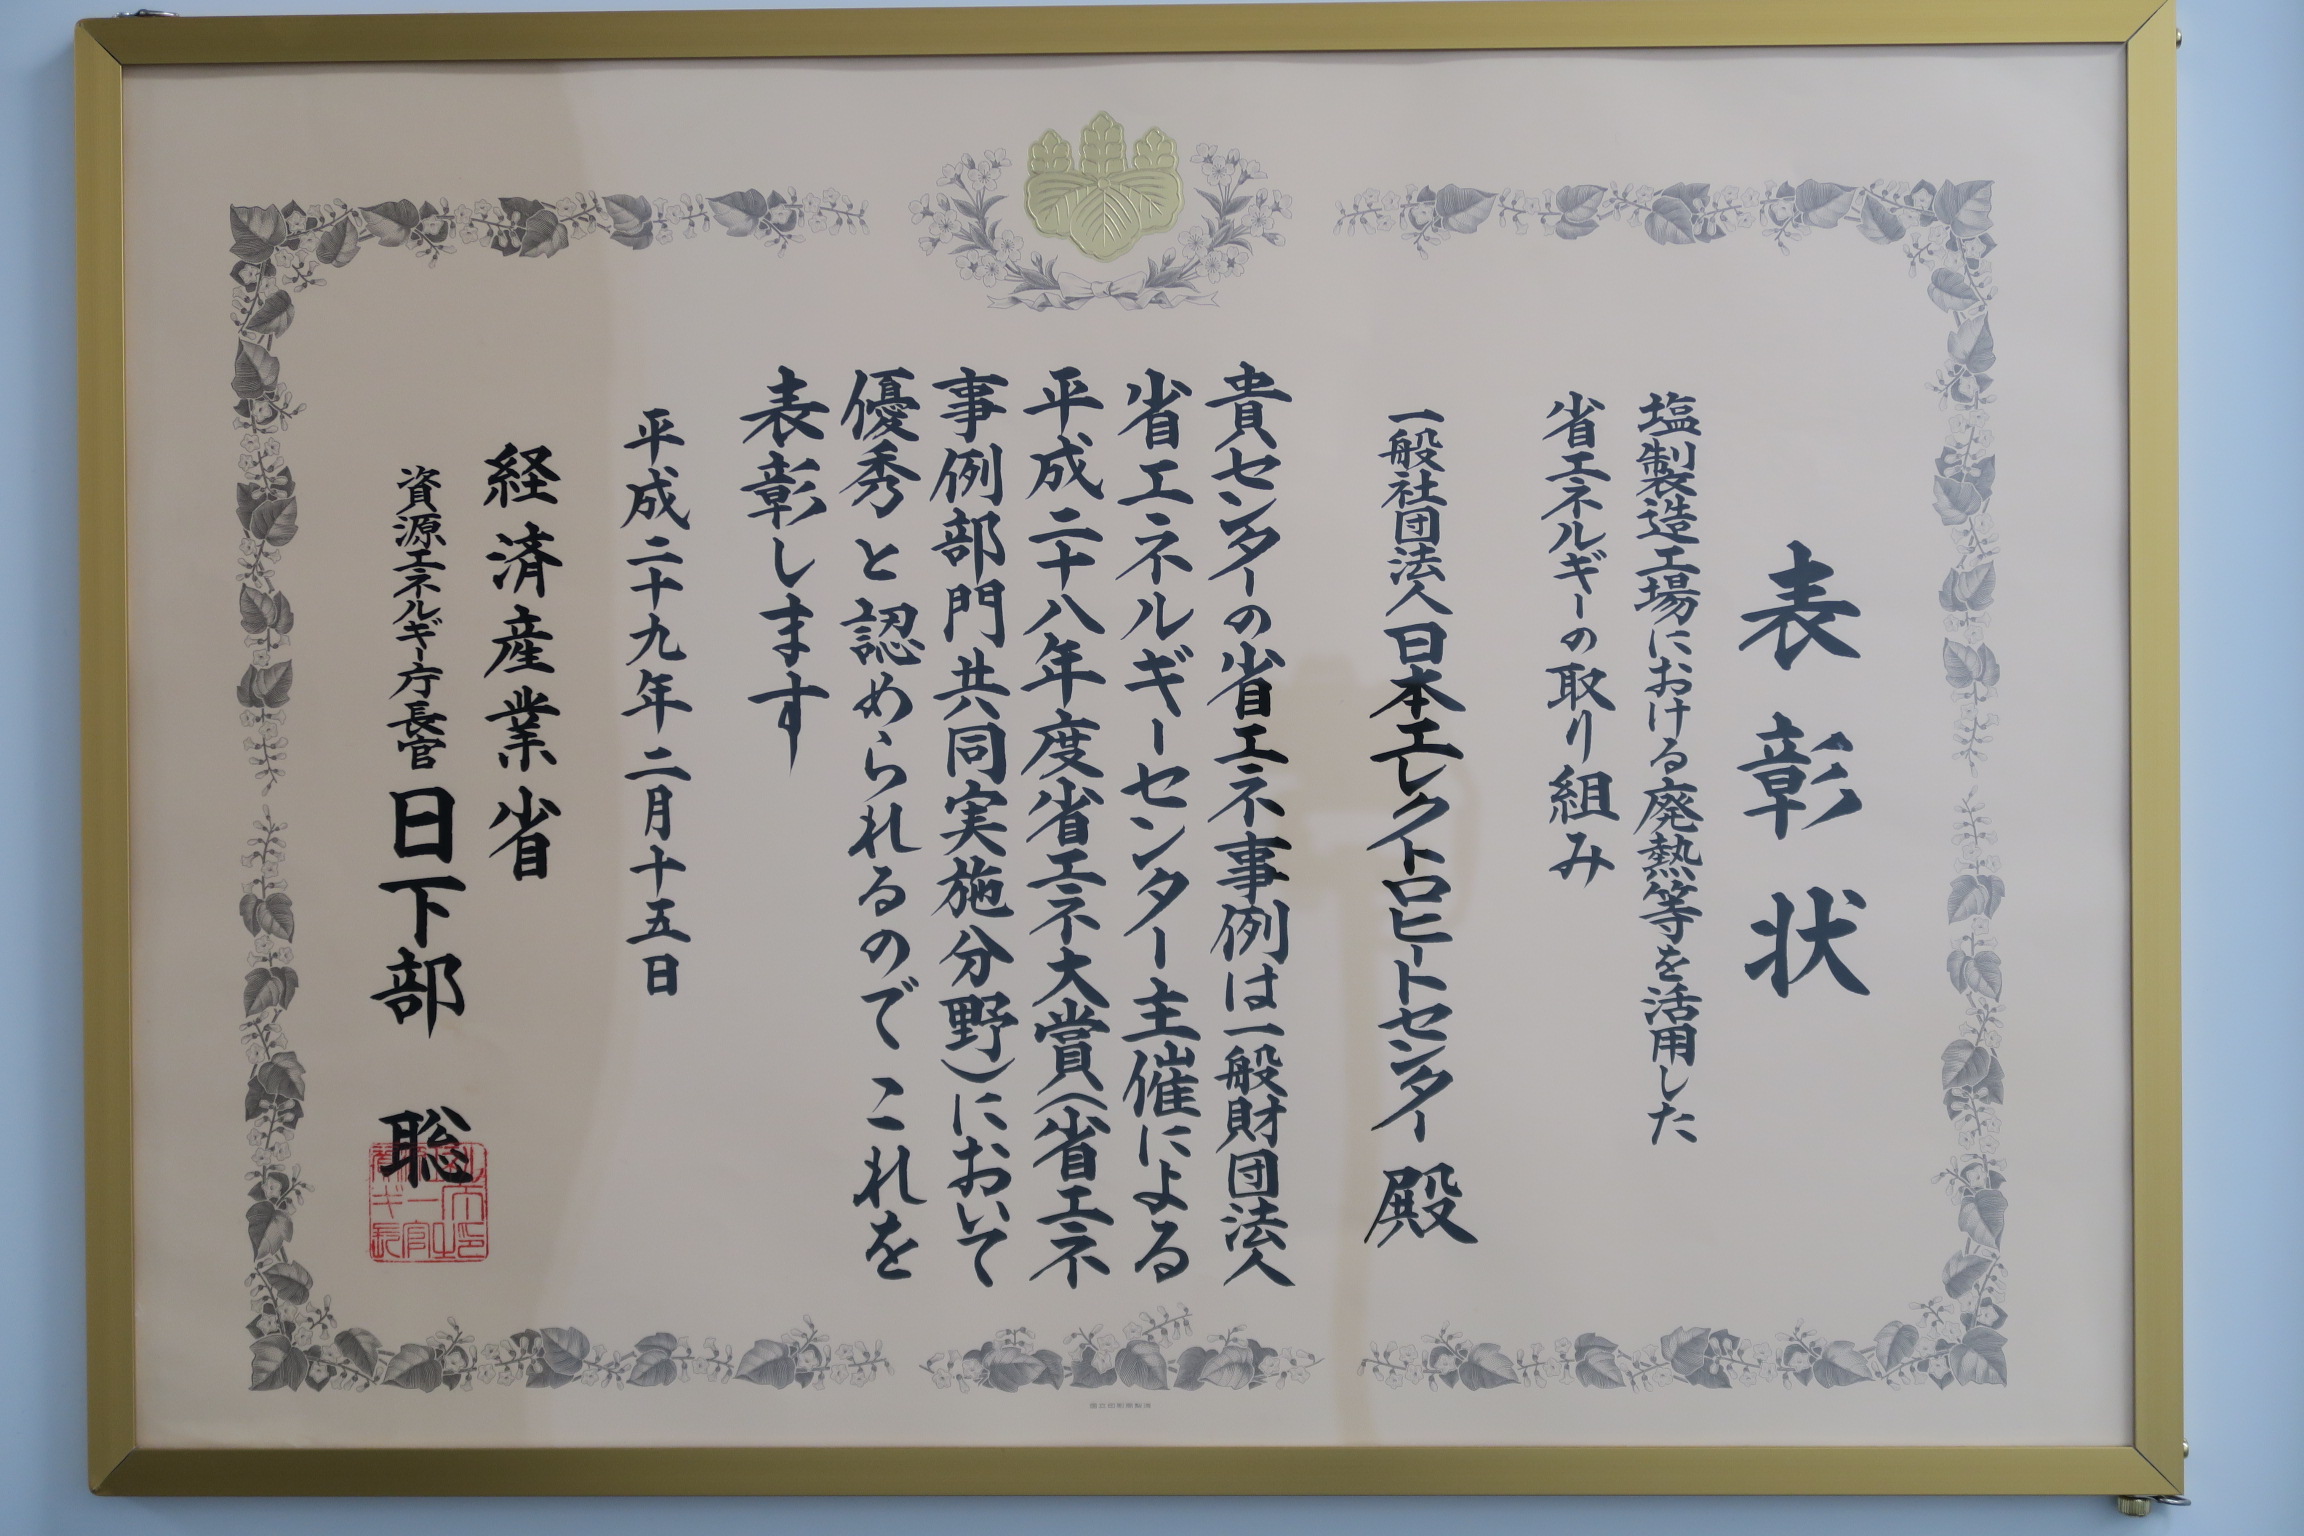 表彰状
塩製造工場における廃熱等を活用した
省エネルギーの取り組み
一般社団法人日本エレクトロヒートセンター殿
貴センターの省エネ事例は一般財団法人
省エネルギーセンター主催による
平成二十八年度省エネ大賞(省エネ
事例部門共同実施分野)において
優秀と認められるのでこれを
表彰します
平成二十九年二月十五日
経済産業省
資源エネルギー庁長官日下部 聡